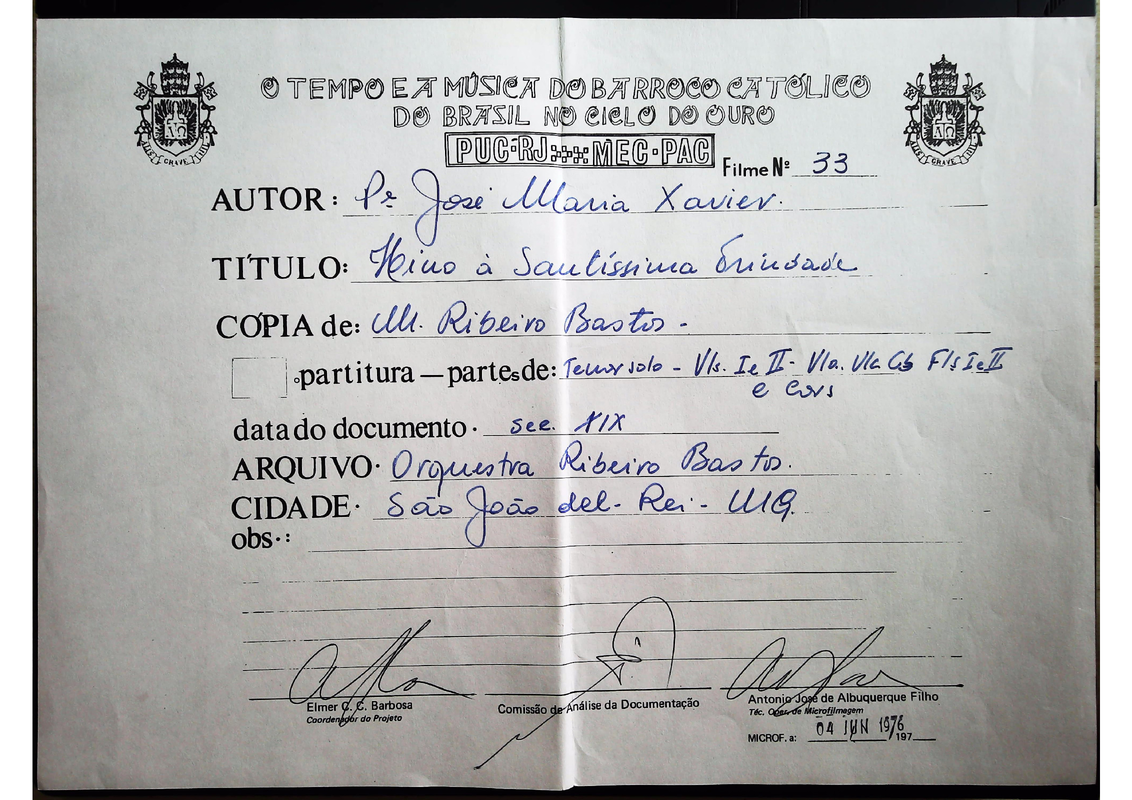 O TEMPO E A MÚSICA DO BARROCO CATÓLICO
DO BRASIL NO CICLO DO OURO
PUC-RJ MEC-PAC
Filme Nº 33
AUTOR: Pe José Maria Xavier.
TÍTULO: Hino à Santíssima Trindade
CÓPIA de: M. Ribeiro Bastos -
partitura — partes de: Tenor solo - Vls. I e II - Vla. Vlc Cb Fls I e II
e Cors
data do documento · sec. XIX
ARQUIVO · Orquestra Ribeiro Bastos.
CIDADE · São João del-Rei - MG.
obs.:
Elmer C. C. Barbosa
Coordenador do Projeto
Comissão de Análise da Documentação
Antonio José de Albuquerque Filho
Téc. Oper. de Microfilmagem
MICROF. a: 04 JUN 1976 197